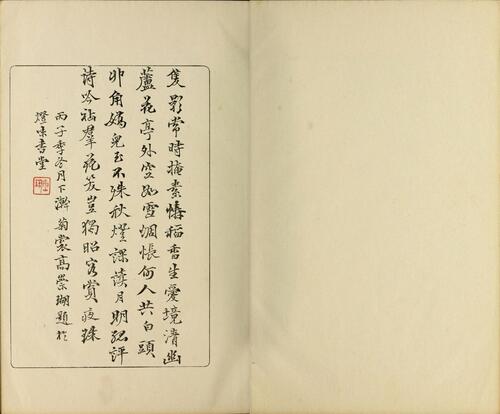 隻影常時掩素幃稻香生愛境清幽
蘆花亭外空如雪惆悵何人共白頭
丱角嬌兒玉不殊秋燈課讀月明孤評
詩吟砧羣花笑豈獨昭容賞夜珠
丙子季冬月下澣菊裳高崇瑚題於
燈味書堂